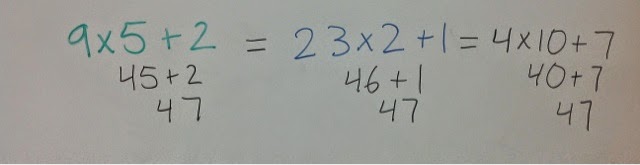 9x5+2 = 23x2+1 = 4x10+7
45+2 46+1 40+7
47 47 47